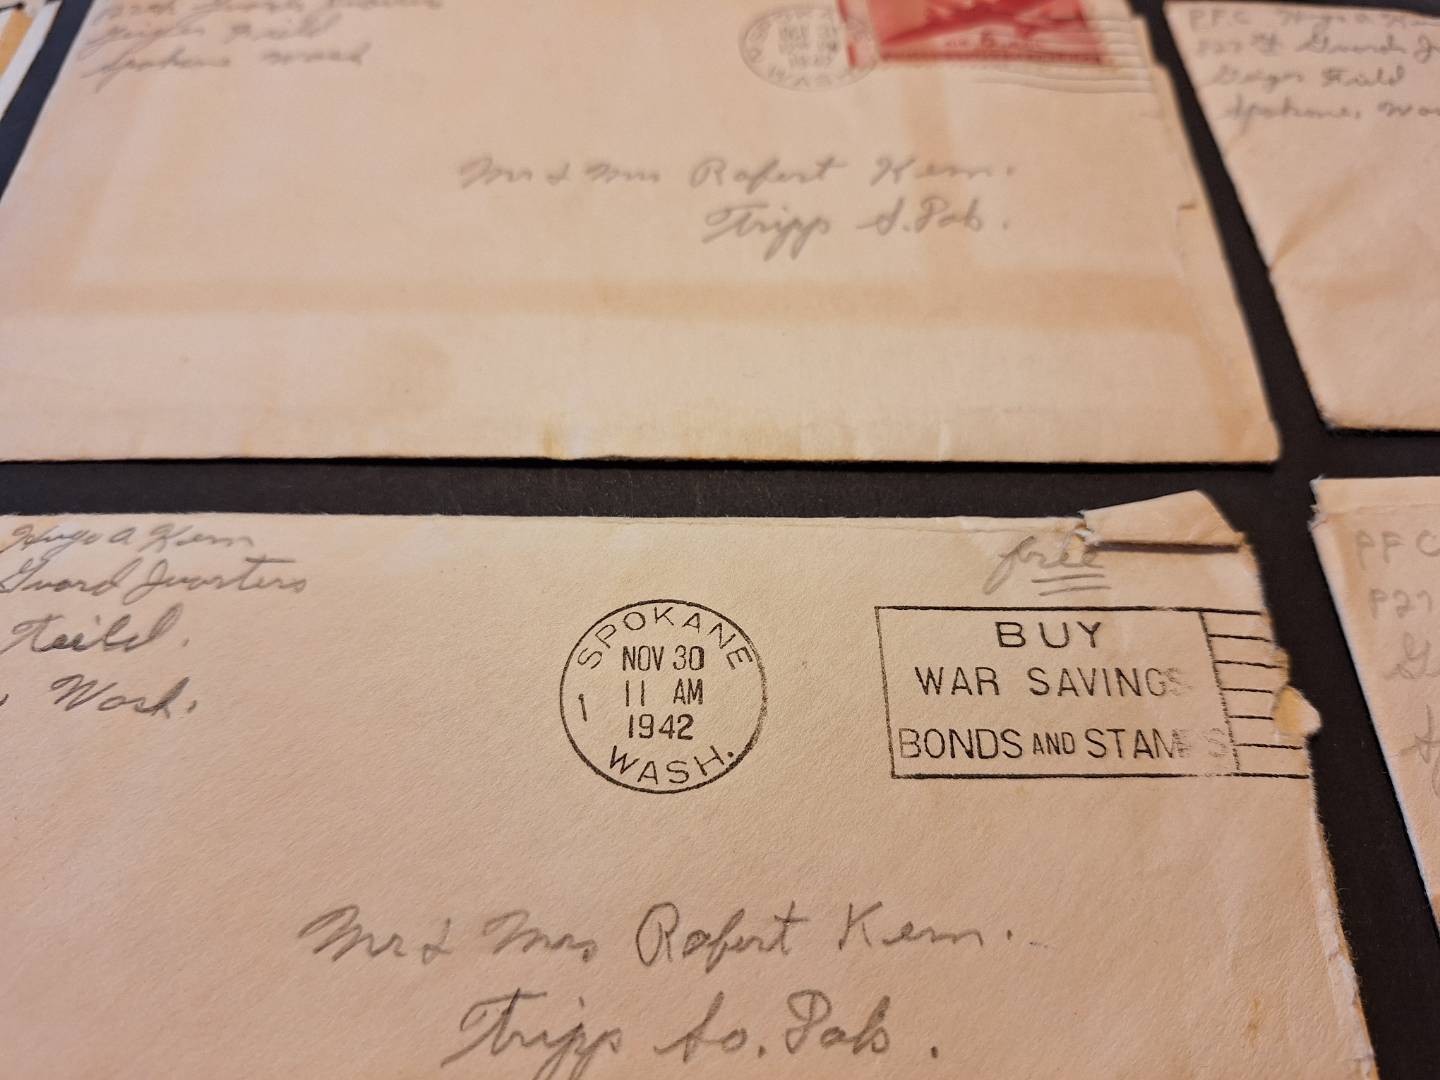 Guard Quarters
Geiger Field
Spokane Wash
1942
Mr & Mrs Robert Kern.
Tripp S. Dak.
PFC Hugo A Kern
Guard
Geiger Field
Spokane, Wash
Hugo A Kern
Guard Quarters
Feild.
Wash.
free
SPOKANE
NOV 30
11 AM
1
1942
WASH.
BUY
WAR SAVINGS
BONDS AND STAMPS
Mr & Mrs Robert Kern.
Tripp So. Dak.
PFC